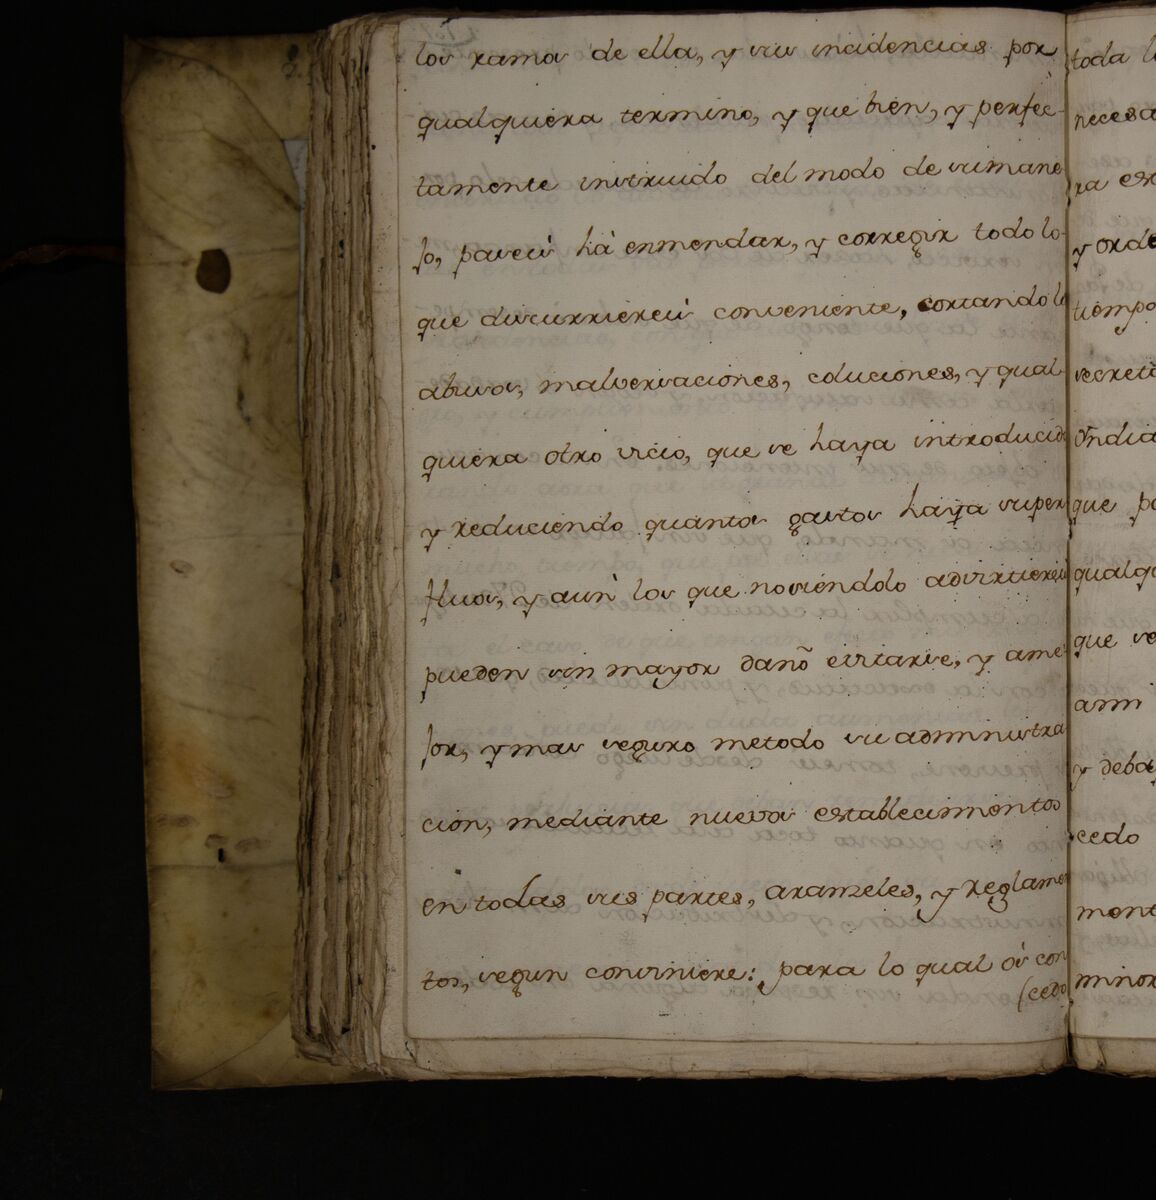 los ramos de ella, y sus incidencias por
qualquiera termino, y que bien, y perfec-
tamente instruido del modo de su mane-
jo, paseis há enmendar, y corregir todo lo
que discurriereis conveniente, cortando lo
abusos, malversaciones, coluciones, y qual
quiera otro vicio, que se haya introducido
y reduciendo quantos gastos haya super
fluos, y aún los que no siendolo advirtiereis
pueden sin mayor daño evitarse, y a me-
jor, y mas seguro metodo su administra
cion, mediante nuevos establecimientos
en todas sus partes, aranzeles, y Reglamen
tos, segun conviniere: para lo qual ós con
(cedo
toda l
necesa
ra es
y orde
tiempo
secreto
Yndia
que po
qualqu
que se
ann
y deba
cedo
mont
minor